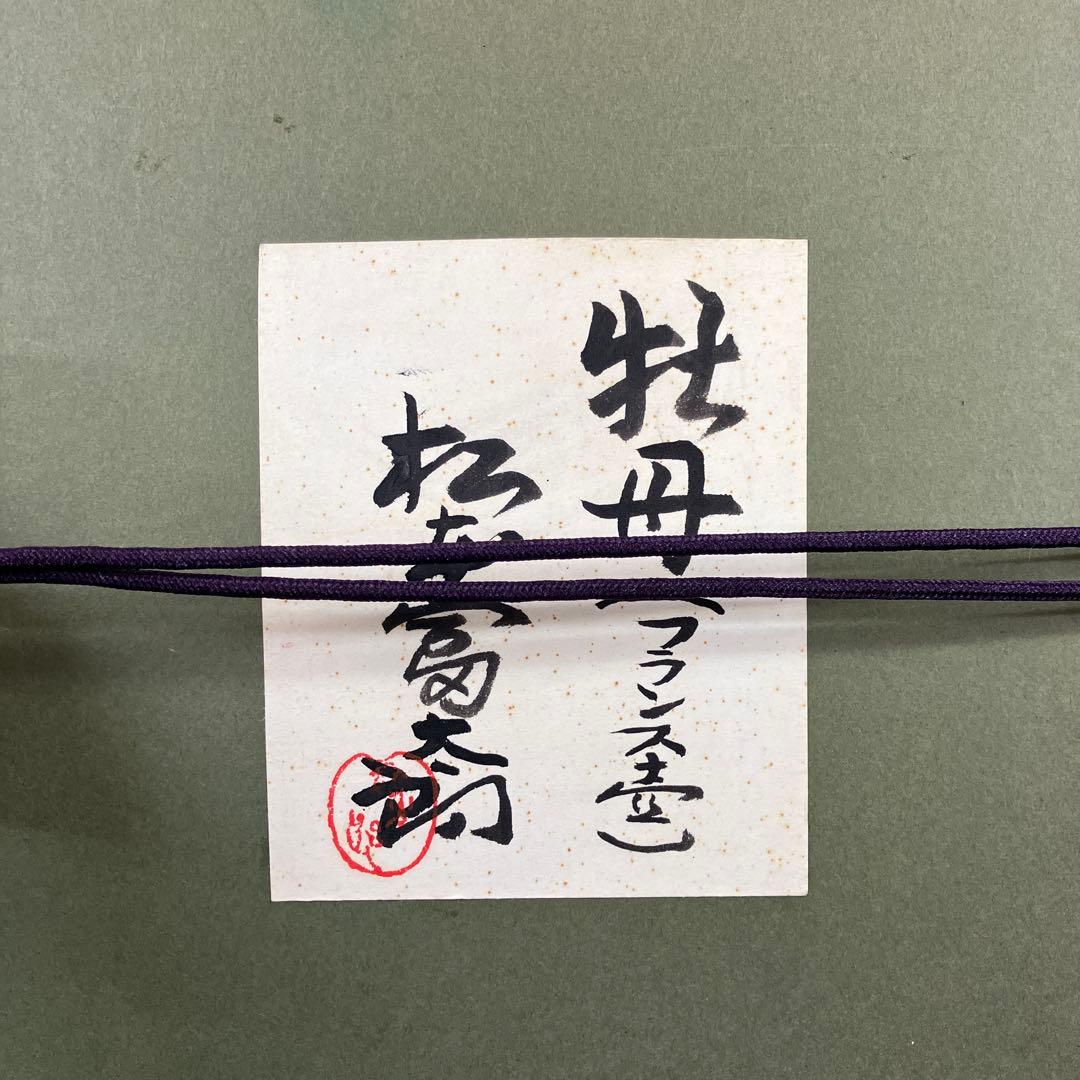 牡丹(フランス壺)
松本富太郎